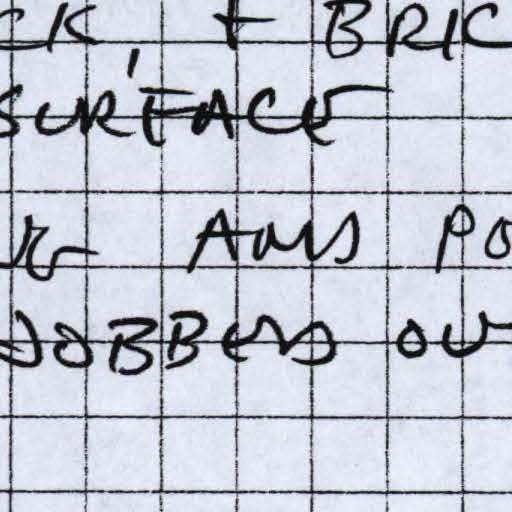 CK, + BRIC
SURFACE
AMS PO
JOBBERS OU